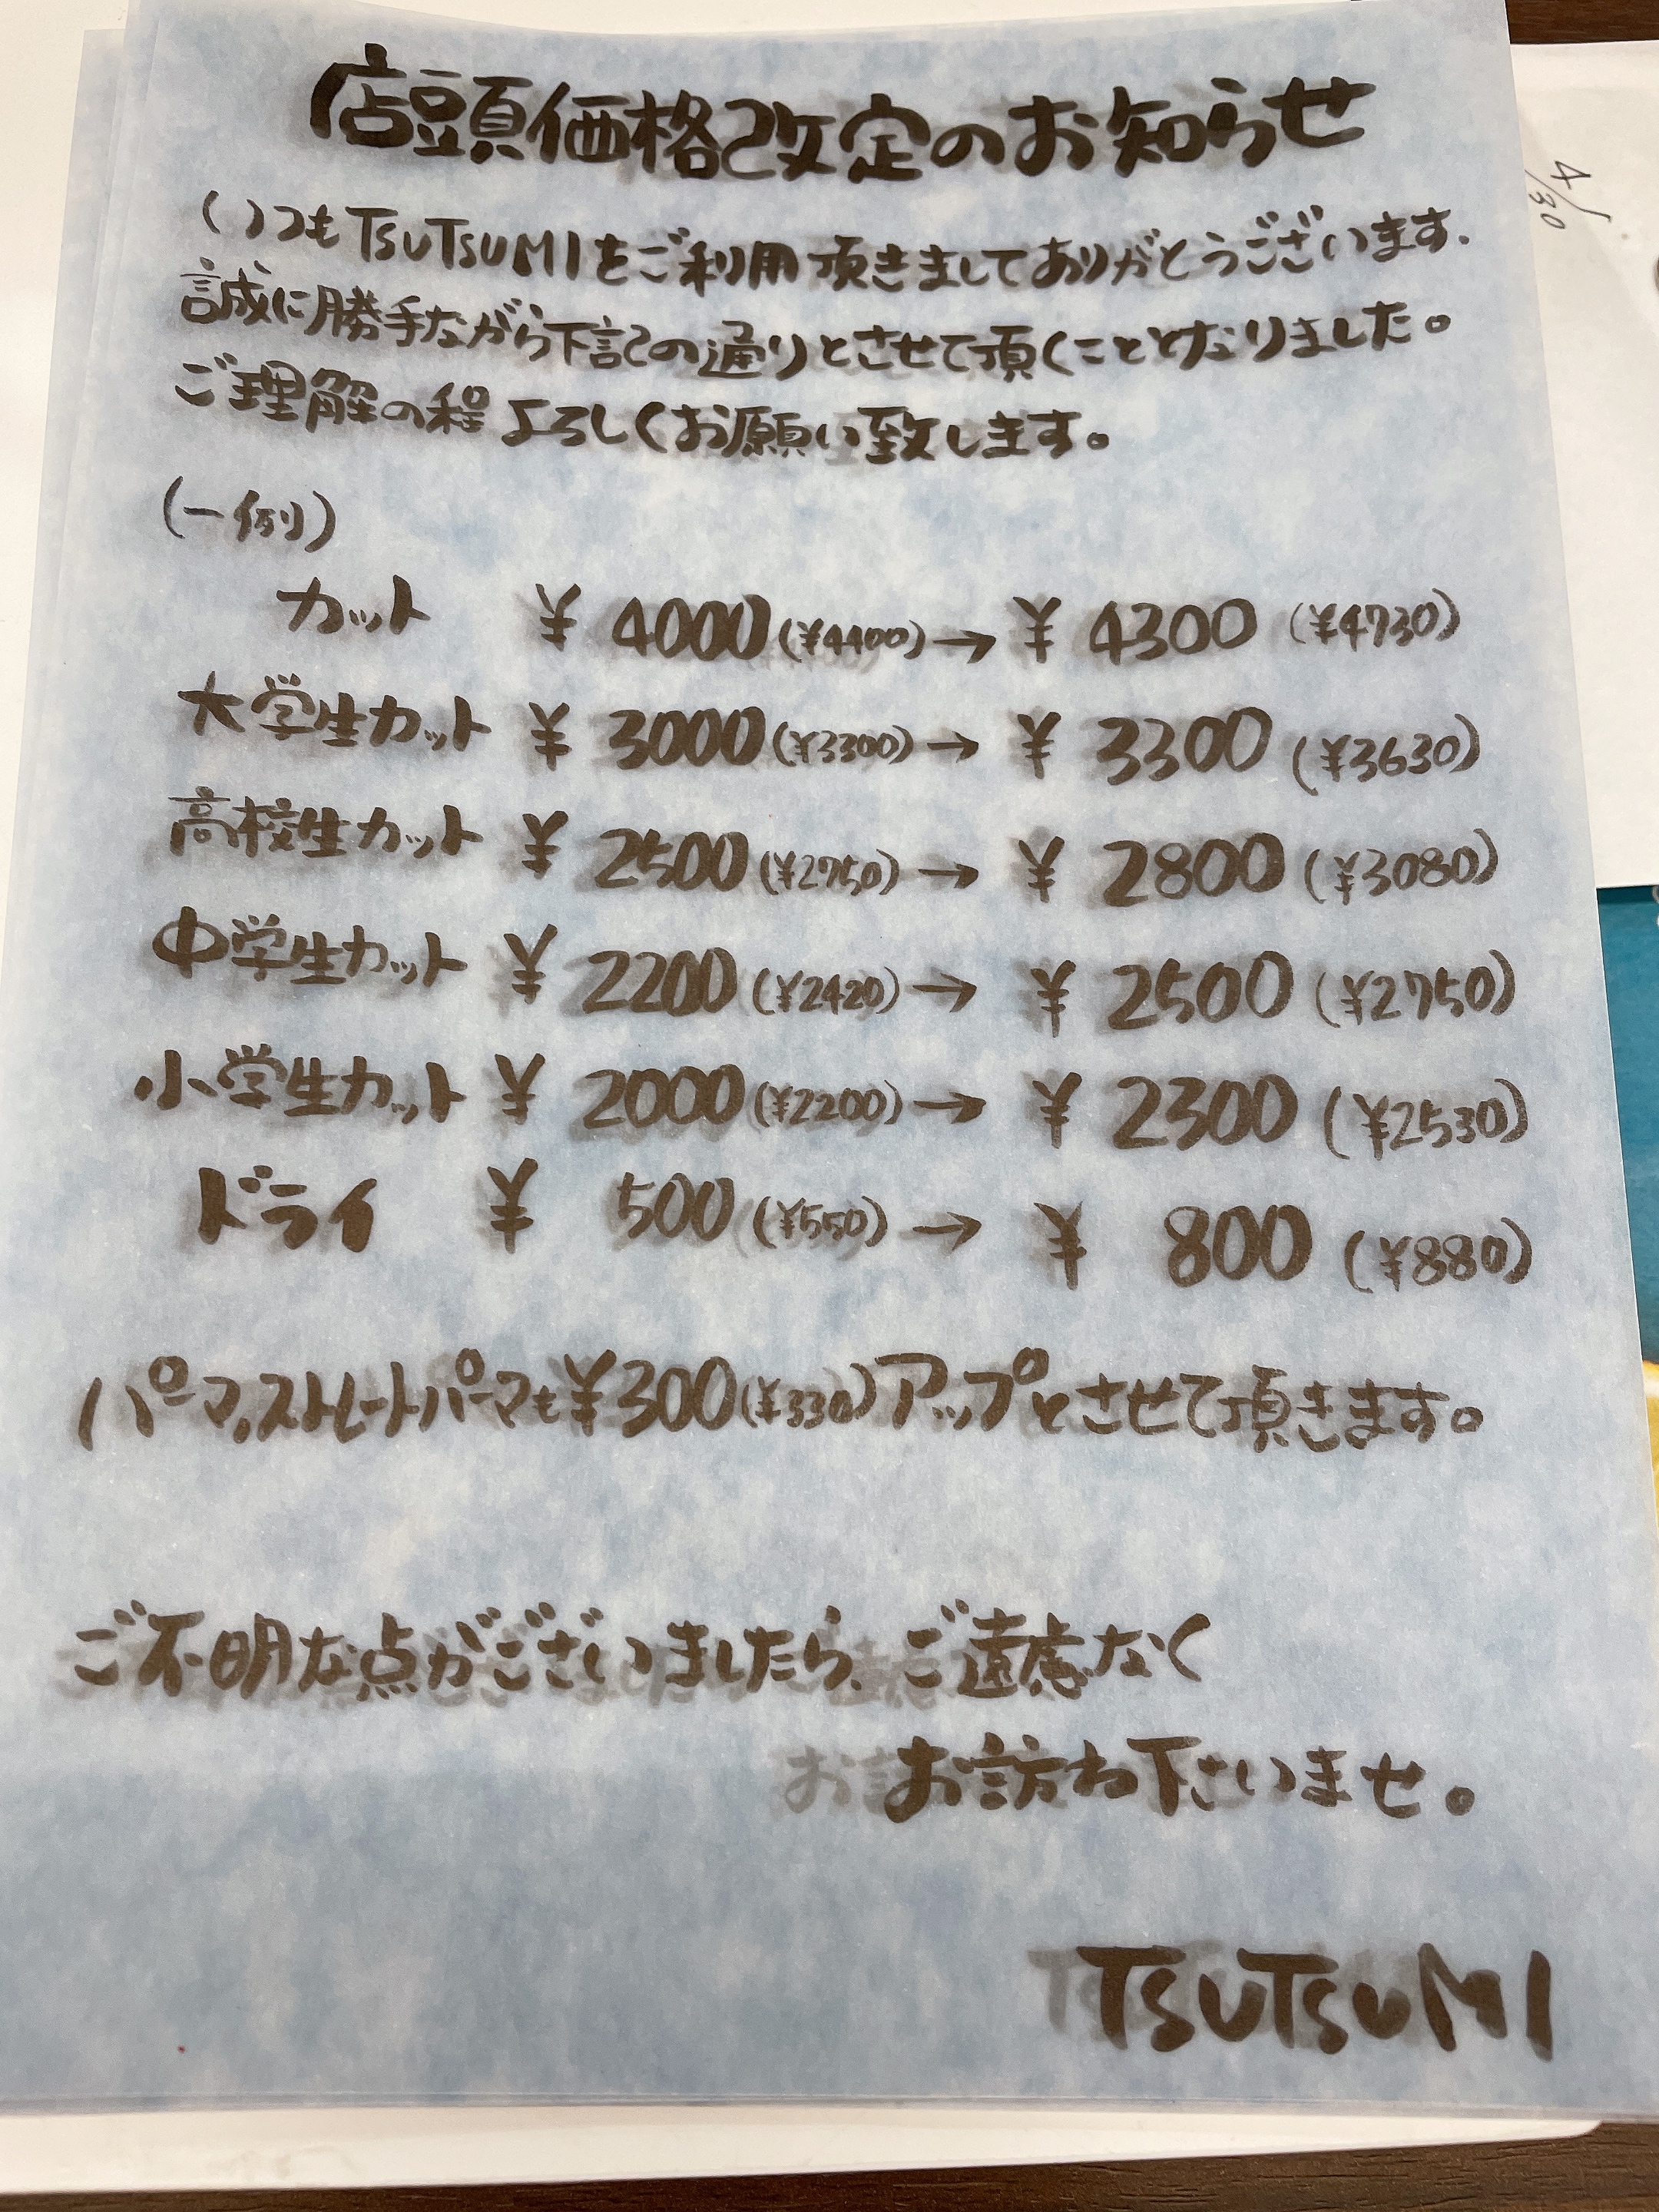 店頭価格改定のお知らせ
いつもTSUTSUMIをご利用頂きましてありがとうございます.
誠に勝手ながら下記の通りとさせて頂くこととなりました。
ご理解の程よろしくお願い致します。
(一例)
カット ¥ 4000(¥4400)→ ¥ 4300 (¥4730)
大学生カット ¥ 3000(¥3300)→ ¥ 3300 (¥3630)
高校生カット ¥ 2500(¥2750)→ ¥ 2800 (¥3080)
中学生カット ¥ 2200(¥2420)→ ¥ 2500 (¥2750)
小学生カット ¥ 2000(¥2200)→ ¥ 2300 (¥2530)
ドライ ¥ 500(¥550)→ ¥ 800 (¥880)
パーマ,ストレートパーマも¥300(¥330)アップとさせて頂きます。
ご不明な点がございましたら、ご遠慮なく
お訪ね下さいませ。
TSUTSUMI
4/30